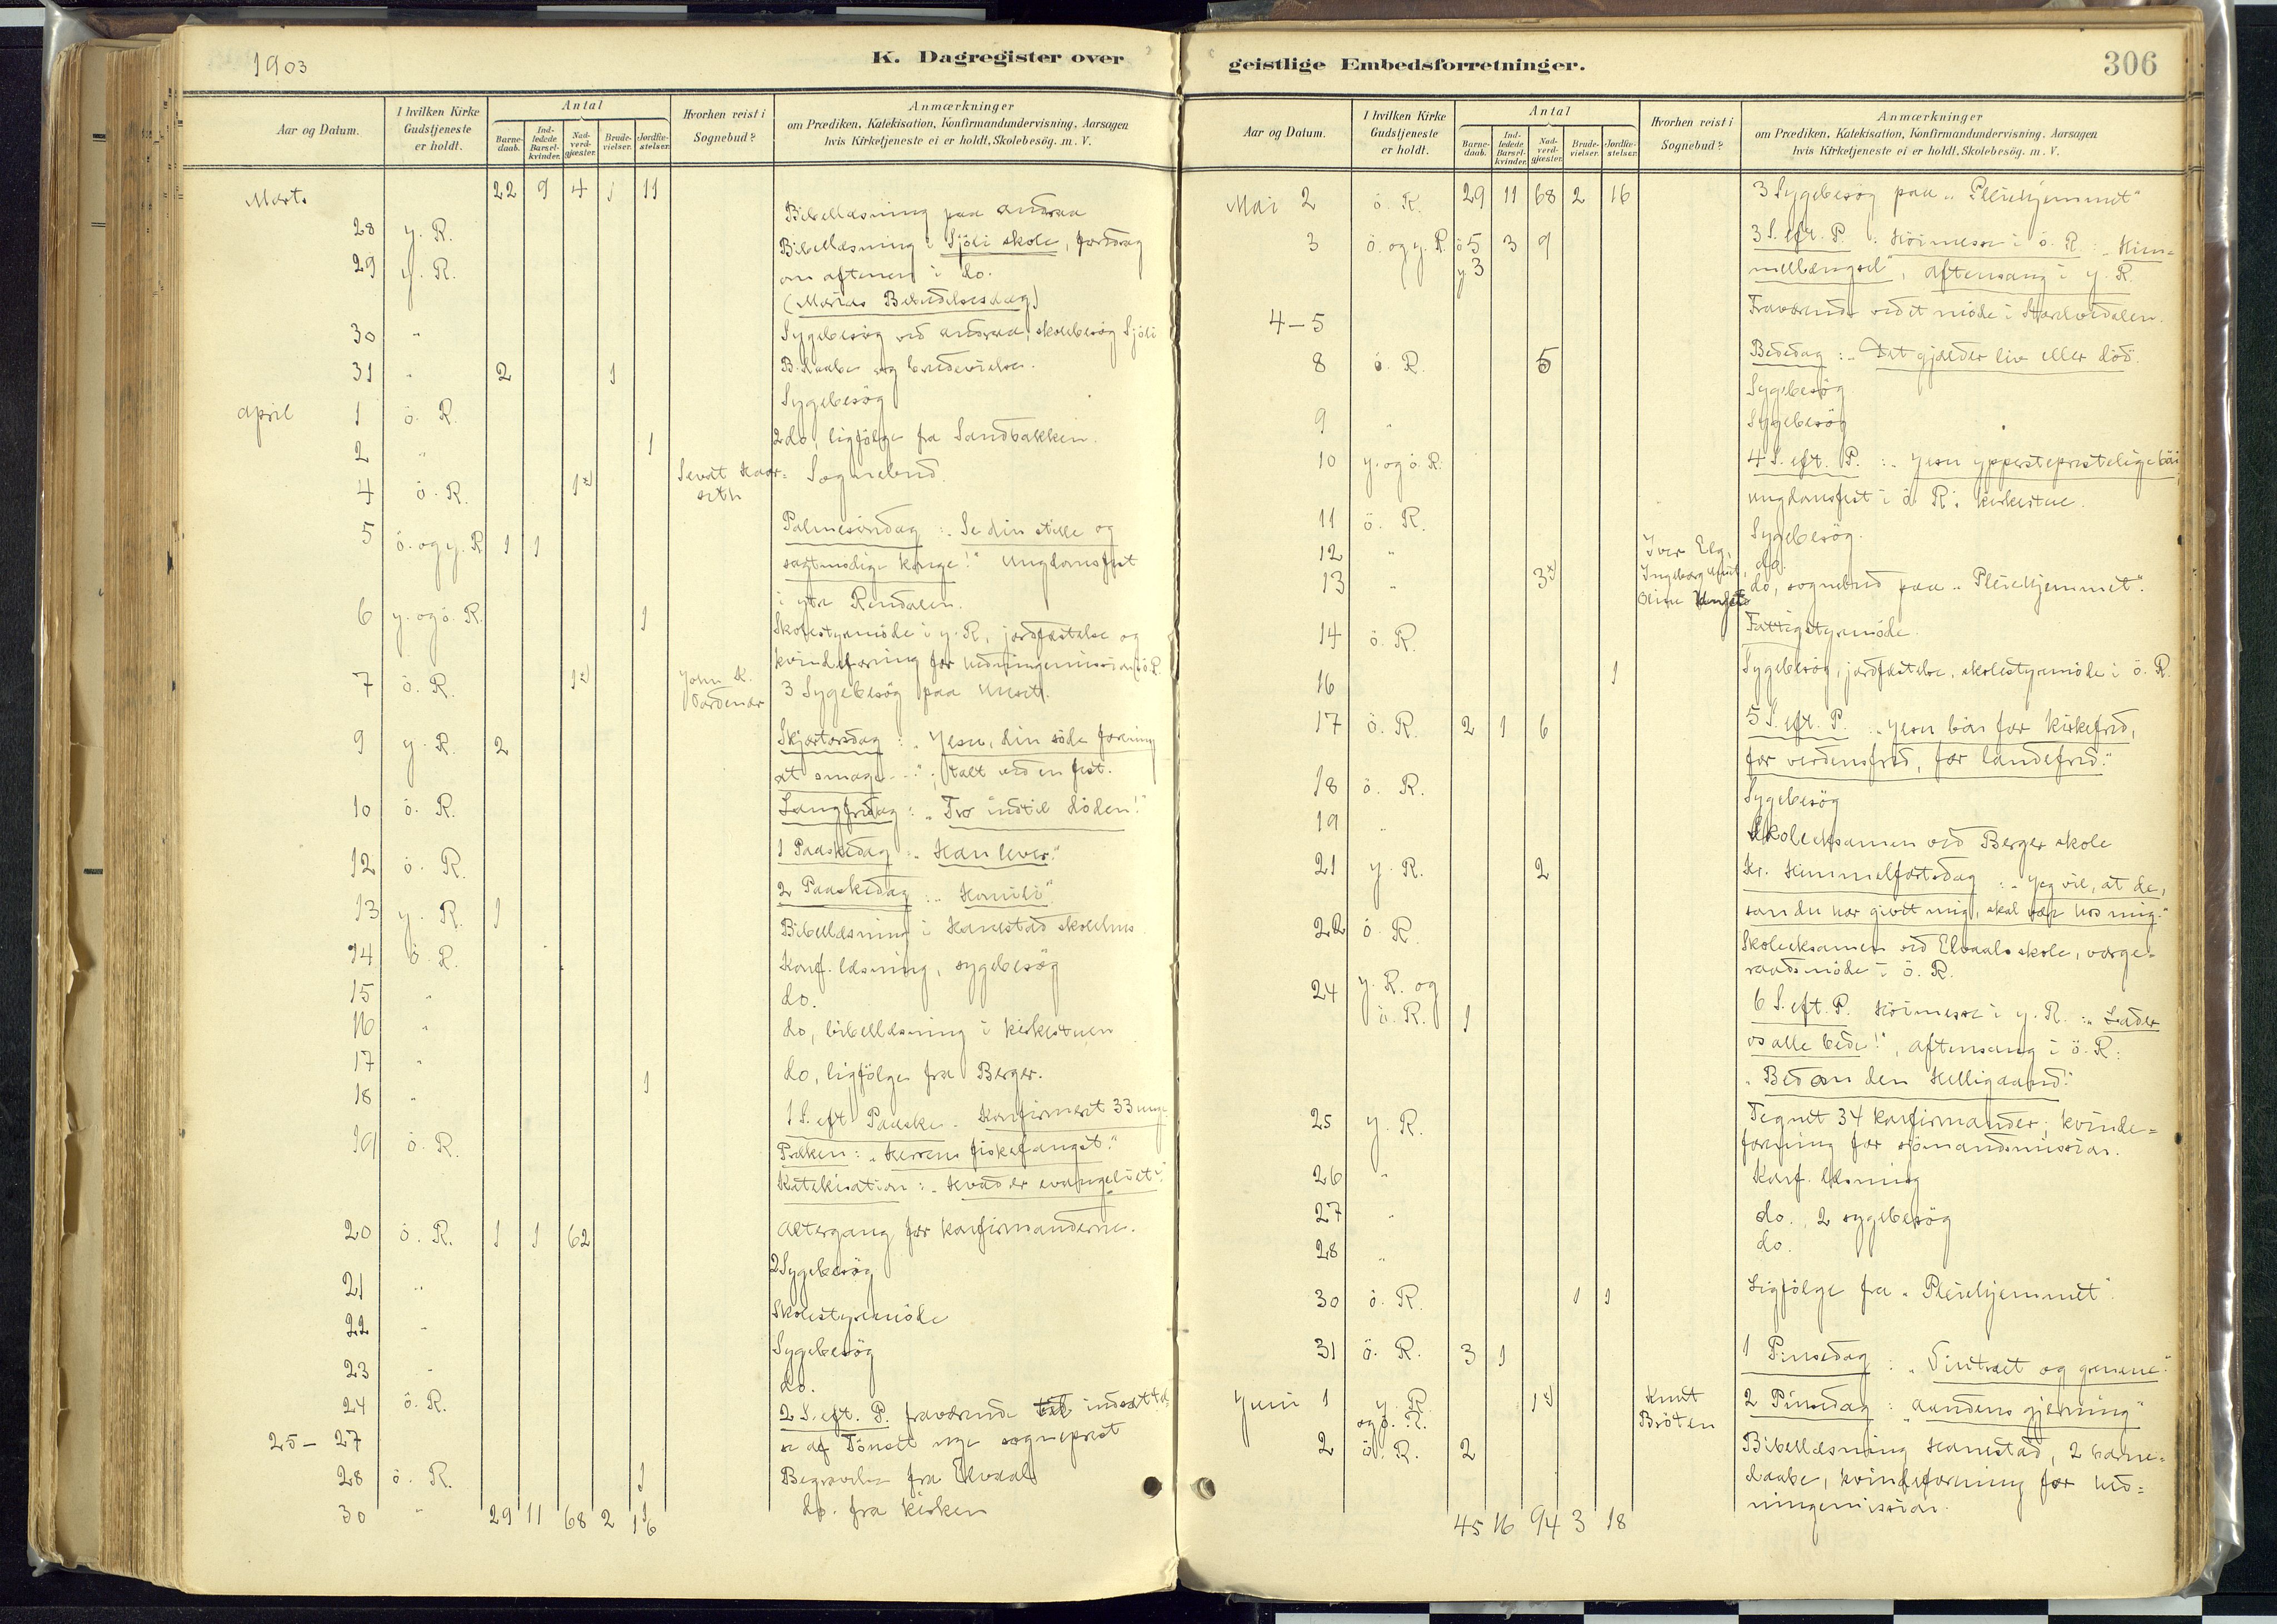 1903
K. Dagregister over
Aar og Datum.
I hvilken Kirke Gudstjeneste er holdt.
Antal
Barne-daab.
Ind-ledede Barsel-kvinder.
Nad-verd-gjester.
Brude-vielser.
Jordfæ-stelser.
Hvorhen reist i Sognebud?
Anmærkninger
om Prædiken, Katekisation, Konfirmandundervisning, Aarsagen
hvis Kirketjeneste ei er holdt, Skolebesög. m. V.
Marts 22 9 4 1 11
28 y. R. Bibellæsning paa Andraa
29 y. R. Bibellæsning i Sjöli skole, foredrag
om aftenen i do.
(Marias Bebudelsesdag)
30 " Sygebesög ved Andraa, skolebesög Sjöli
31 " 2 1 B. daabe og brudevielse.
April 1 ö. R. Sygebesög
2 " 1 2 do, ligfölge fra Sandbakken.
4 ö. R. 1 Sognebud
5 ö. og y. R. 1 1 Palmesöndag: "Se din stille og
sagtmodige konge!" Ungdomsfest
i ytre Rendalen.
6 y. og ö. R. 1 Skolestyremöde i y. R., jordfæstelse og
kvindeforening for hedningemission i ö. R.
7 ö. R. 1 John K. 3 Sygebesög paa Unset.
9 y. R. 2 Skjærtorsdag: "Jesu, din söde forening
at smage --"; talt ved en fest.
10 ö. R. Langfredag: "Tro indtil döden!"
12 ö. R. 1 Paaskedag: "Han lever."
13 y. R. 1 2 Paaskedag: "Homili".
14 ö. R. Bibellæsning i Hanestad skolehus
15 " Konf. læsning, sygebesög
16 " do.
17 " do, bibellæsning i kirkestuen
18 " 1 do, ligfölge fra Berger.
19 ö. R. 1 S. eft Paaske. Konfirmert 33 unge
Præken: "Herrens fiskefangst."
Katekisation: "Hvad er evangeliet?"
20 ö. R. 1 1 62 Altergang for konfirmanderne.
21 " 2 Sygebesög
22 " Skolestyremöde
23 " Sygebesög
24 ö. R. do.
25 - 27 2 S. eft. P. fraværende indsættel-
se af Tönset nye sogneprest
28 ö. R. 1 Begravelse fra Elvaal
30 " 1 do. fra kirken
29 11 68 2 16
geistlige Embedsforretninger.
306
Aar og Datum.
I hvilken Kirke Gudstjeneste er holdt.
Antal
Barne-daab.
Ind-ledede Barsel-kvinder.
Nad-verd-gjæster.
Brude-vielser.
Jordfæ-stelser.
Hvorhen reist i Sognebud?
Anmærkninger
om Prædiken, Katekisation, Konfirmandundervisning, Aarsagen
hvis Kirketjeneste ei er holdt, Skolebesög. m. V.
Mai 2 ö. R. 29 11 68 2 16 3 Sygebesög paa "Pleiehjemmet"
3 ö. og y. R. ö 5 3 9 3 S. eft. P.: Höimesse i ö. R.: "Him-
y 3 mellængsel", aftensang i y. R.
4 - 5 Fraværende ved et möde i
8 ö. R. 5 Bededag: "Det gjælder liv eller död."
Sygebesög
9 " Sygebesög
10 y. og ö. R. 4 S. eft. P.: "Jesu ypperstepræstelige bön
ungdomsfest i ö. R.: kirkestue.
11 ö. R. Sygebesög.
12 " do.
13 " 3 Iver Elg, Ingeborg Unset, Oline do, sognebud paa "Pleiehjemmet".
14 ö. R. Fattigstyremöde.
16 1 Sygebesög, jordfæstelse, skolestyremöde i ö. R.
17 ö. R. 2 1 6 5 S. eft. P.: "Jesu bön for kirkefred,
for verdensfred, for landefred."
18 ö. R. Sygebesög
19 " Skoleeksamen ved Berger skole
21 y. R. 2 Kr. Himmelfartsdag: "Jeg vil, at de,
som du har givet mig, skal være hos mig."
22 ö. R. Skoleeksamen ved Elvaal skole, værge-
raadsmöde i ö. R.
24 y. R. og ö. R. 1 6 S. eft. P. Höimesse i y. R.: "Lader
os alle bede!", aftensang i ö. R:
"Bed om den Helligaand."
25 y. R. Tegnet 34 konfirmander; kvinde-
forening for sjömandsmission.
26 " Konf. læsning
27 " do., 2 sygebesög
28 " do.
30 ö. R. 1 1 Ligfölge fra "Pleiehjemmet".
31 ö. R. 3 1 1 Pinsedag: "Vintræet og grenene."
Juni 1 y. R. og ö. R. 1 Knut Bröten 2 Pinsedag: "Aandens gjerning"
2 ö. R. 2 Bibellæsning Hanestad, 2 barne-
daabe, kvindeforening for hed-
ningemission.
45 16 94 3 18